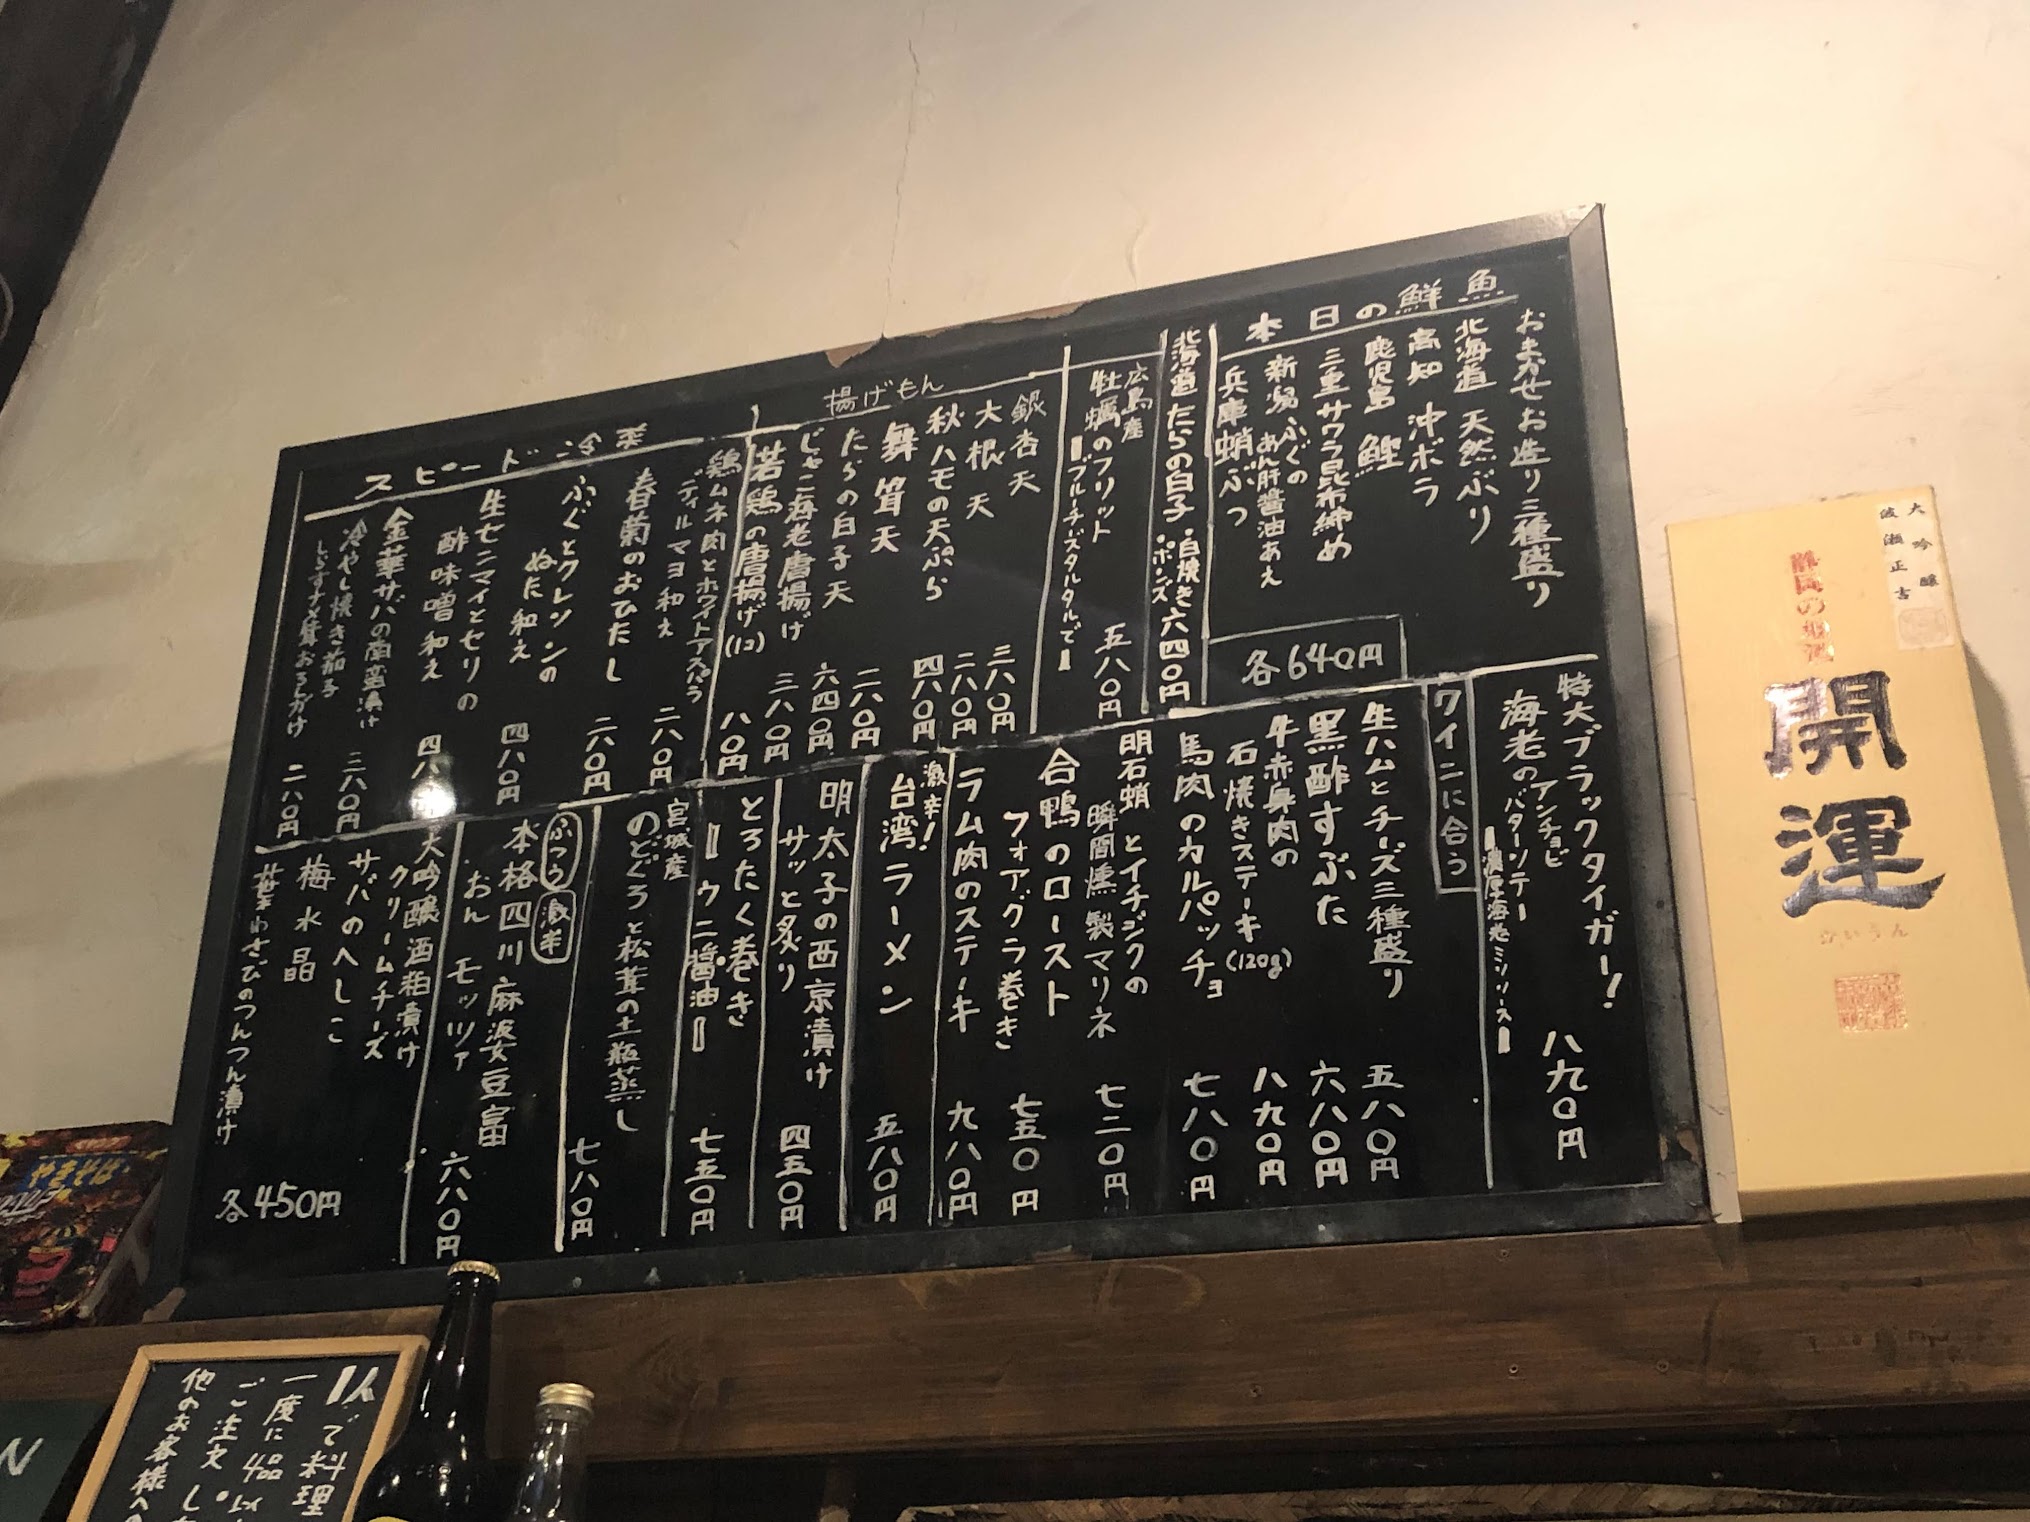 本日の鮮魚
おまかせお造り三種盛り
北海道 天然ぶり
高知 沖ボラ
鹿児島 鰹
三重サワラ昆布締め
新潟ふぐの
あん肝醤油あえ
兵庫蛸ぶつ
各640円
北海道たらの白子・白焼き六四〇円
・ポンズ
広島産
牡蠣のフリット
『ブルーチーズタルタルで』
五八〇円
揚げもん
銀杏天 三八〇円
大根天 二八〇円
秋ハモの天ぷら 四八〇円
舞茸天 二八〇円
たらの白子天 六四〇円
じゃこ海老唐揚げ 三八〇円
若鶏の唐揚げ(1コ) 八〇円
スピード冷菜
鶏ムネ肉とホワイトアスパラ
ディルマヨ和え 二八〇円
春菊のおひたし 二八〇円
ふぐとクレソンの
ぬた和え 四八〇円
生センマイとセリの
酢味噌和え
金華サバの南蛮漬け 三八〇円
冷やし焼き茄子
二八〇円
特大ブラックタイガー!
海老のアンチョビ
バターソテー
『濃厚海老ミソソース』
八九〇円
ワインに合う
生ハムとチーズ三種盛り 五八〇円
黒酢すぶた 六八〇円
牛赤身肉の
石焼きステーキ(120g) 八九〇円
馬肉のカルパッチョ 七八〇円
明石蛸とイチジクの
瞬間燻製マリネ 七二〇円
合鴨のロースト
フォアグラ巻き 七五〇円
ラム肉のステーキ 九八〇円
激辛!
台湾ラーメン 五八〇円
明太子の西京漬け
サッと炙り 四五〇円
とろたく巻き
『ウニ醤油』 七五〇円
宮城産
のどぐろと松茸の土瓶蒸し 七八〇円
ふつう 激辛
本格四川麻婆豆富
おん モッツァ 六八〇円
大吟醸酒粕漬け
クリームチーズ
サバのへしこ
梅水晶
葉わさびのつんつん漬け
各450円
大吟醸
波瀬正吉
静岡の地酒
開運
かいうん
やきそば
1人で料理
一度に4品以
ご注文。し
他のお客様への